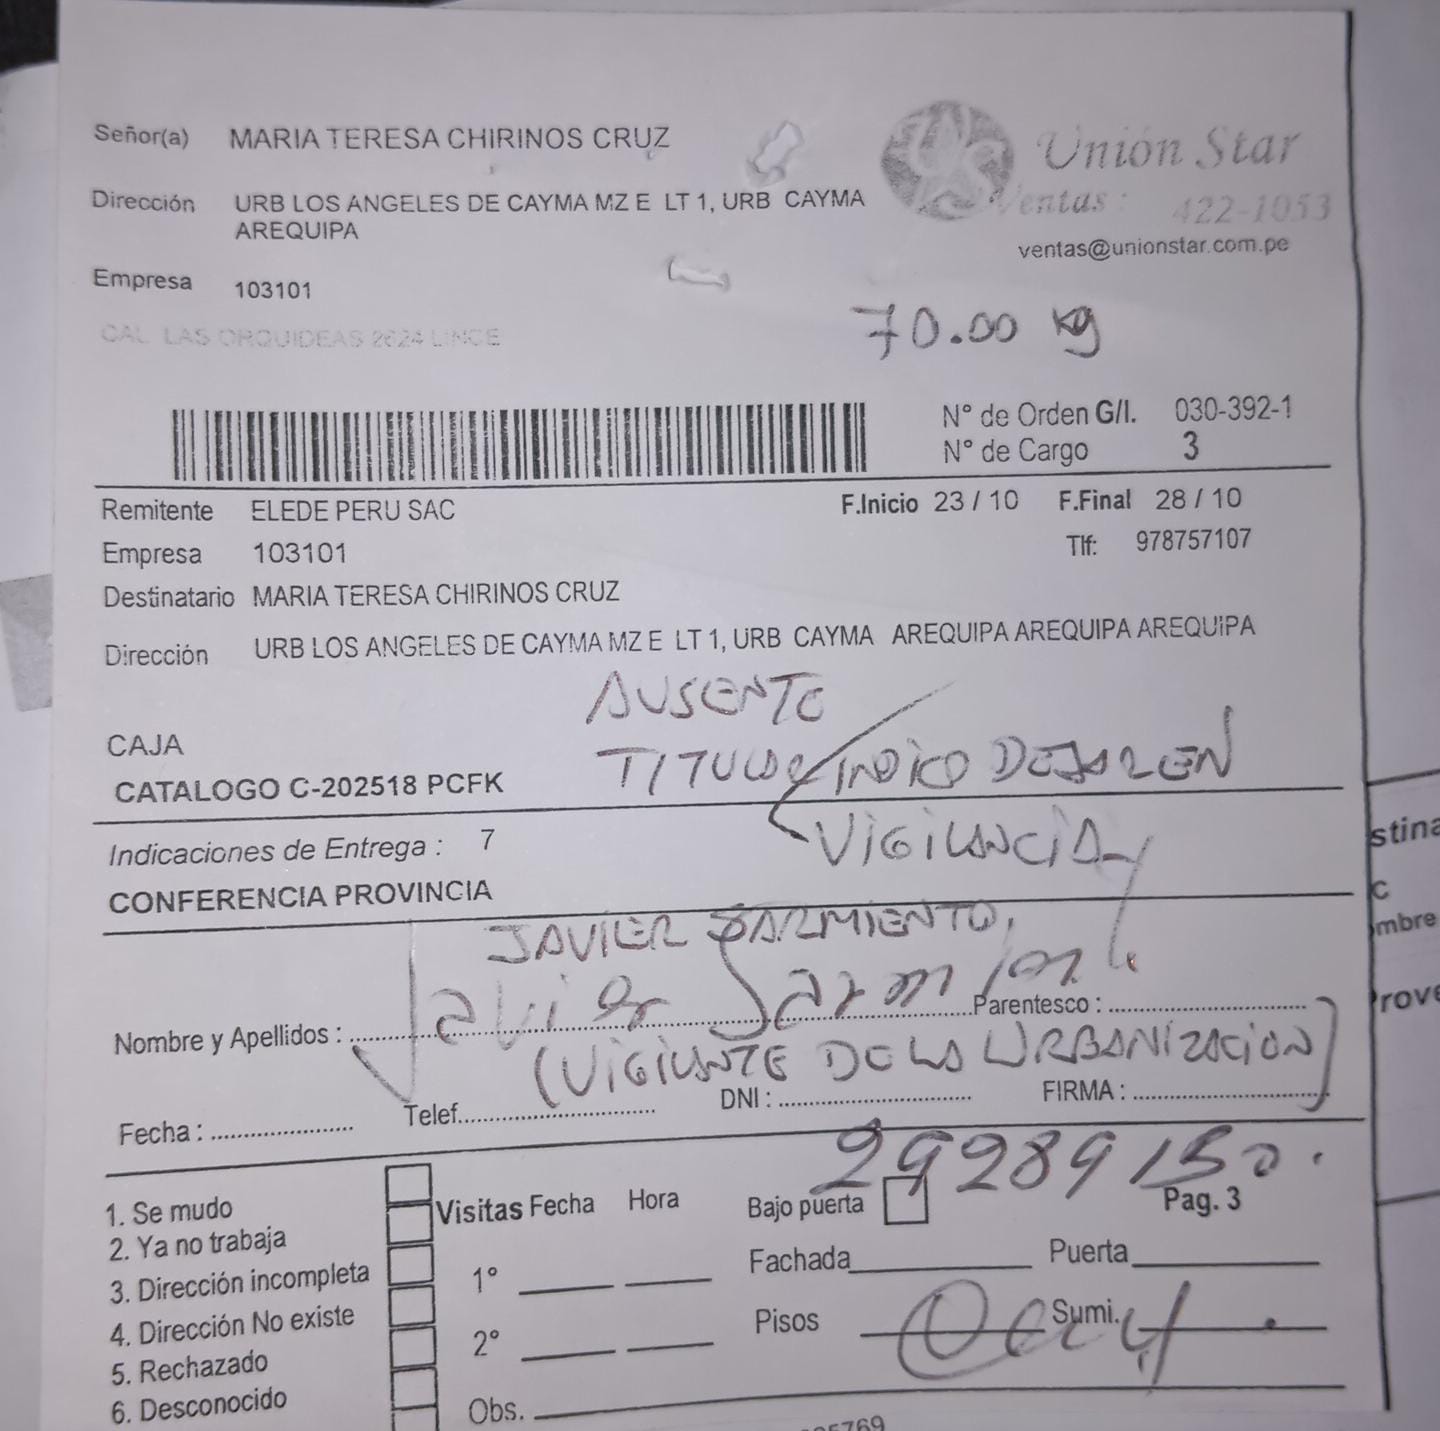 Señor(a) MARIA TERESA CHIRINOS CRUZ
Unión Star
Dirección URB LOS ANGELES DE CAYMA MZ E LT 1, URB CAYMA
AREQUIPA
Ventas : 422-1053
ventas@unionstar.com.pe
Empresa 103101
CAL LAS ORQUIDEAS 2624 LINCE
70.00 kg
N° de Orden G/I. 030-392-1
N° de Cargo 3
Remitente ELEDE PERU SAC F.Inicio 23 / 10 F.Final 28 / 10
Empresa 103101 Tlf: 978757107
Destinatario MARIA TERESA CHIRINOS CRUZ
Dirección URB LOS ANGELES DE CAYMA MZ E LT 1, URB CAYMA AREQUIPA AREQUIPA AREQUIPA
AUSENTE
CAJA
TITULAR INDICO DEJAR EN
CATALOGO C-202518 PCFK
VIGILANCIA
Indicaciones de Entrega : 7
CONFERENCIA PROVINCIA
JAVIER SARMIENTO,
Javier Sarmiento
Nombre y Apellidos : Parentesco :
(VIGILANTE DE LA URBANIZACION)
Fecha : Telef. DNI : FIRMA :
29289150.
1. Se mudo
2. Ya no trabaja
3. Dirección incompleta
4. Dirección No existe
5. Rechazado
6. Desconocido
Visitas Fecha Hora
1°
2°
Obs.
Bajo puerta Pag. 3
Fachada Puerta
Pisos Sumi.
5769
stina
C
mbre
rove